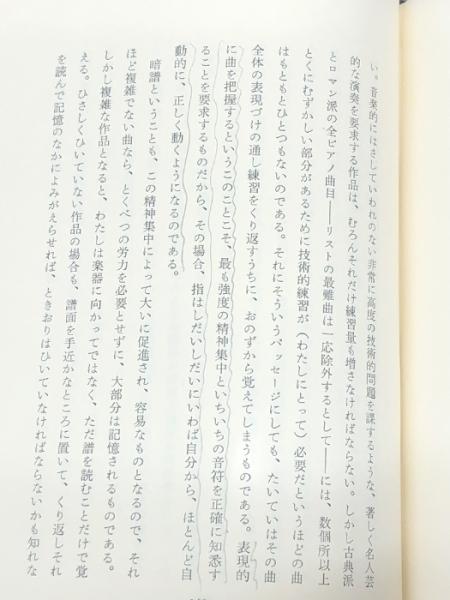 い。音楽的にはさしていわれのない非常に高度の技術的問題を課するような、著しく名人芸
的な演奏を要求する作品は、むろんそれだけ練習量も増さなければならない。しかし古典派
とロマン派の全ピアノ曲目――リストの最難曲は一応除外するとして――には、数個所以上
とくにむずかしい部分があるために技術的練習が(わたしにとって)必要だというほどの曲
はもともとひとつもないのである。それにそういうパッセージにしても、たいていはその曲
全体の表現づけの通し練習をくり返すうちに、おのずから覚えてしまうものである。表現的
に曲を把握するというこのことこそ、最も強度の精神集中といちいちの音符を正確に知悉す
ることを要求するものだから、その場合、指はしだいしだいにいわば自分から、ほとんど自
動的に、正しく動くようになるのである。
暗譜ということも、この精神集中によって大いに促進され、容易なものとなるので、それ
ほど複雑でない曲なら、とくべつの労力を必要とせずに、大部分は記憶されるものである。
しかし複雑な作品となると、わたしは楽器に向かってではなく、ただ譜を読むことだけで覚
える。ひさしくひいていない作品の場合も、譜面を手近かなところに置いて、くり返しそれ
を読んで記憶のなかによみがえらせれば、ときおりはひいていなければならないかも知れな